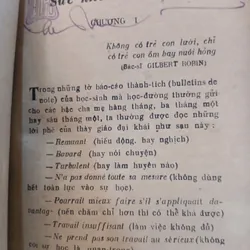 CHƯƠNG I
Không có trẻ con lười, chỉ
có trẻ con ốm hay nuôi hỏng
(Bác-sĩ GILBERT ROBIN)
Trong những tờ báo-cáo thành-tích (bulletins de
école) của học-sinh mà học-đường thường gửi
cho các bậc cha mẹ hàng tháng, ba tháng một
hay sáu tháng một, ta thường được đọc những
lời phê của thầy giáo đại khái như sau này :
— Remuant (hiếu động, hay nghịch)
— Bavard (hay nói chuyện)
— Turbulent (hay làm huyên náo)
— N'a pas donné toute sa mesure (không dùng
hết toàn lực vào sự học).
— Pourrait mieux faire s'il s'appliquait da-
vantage (nếu chăm chỉ hơn thì có thể khá được)
— Travail insuffisant (làm việc không đủ)
— Ne prend pas son travail au sérieux (không